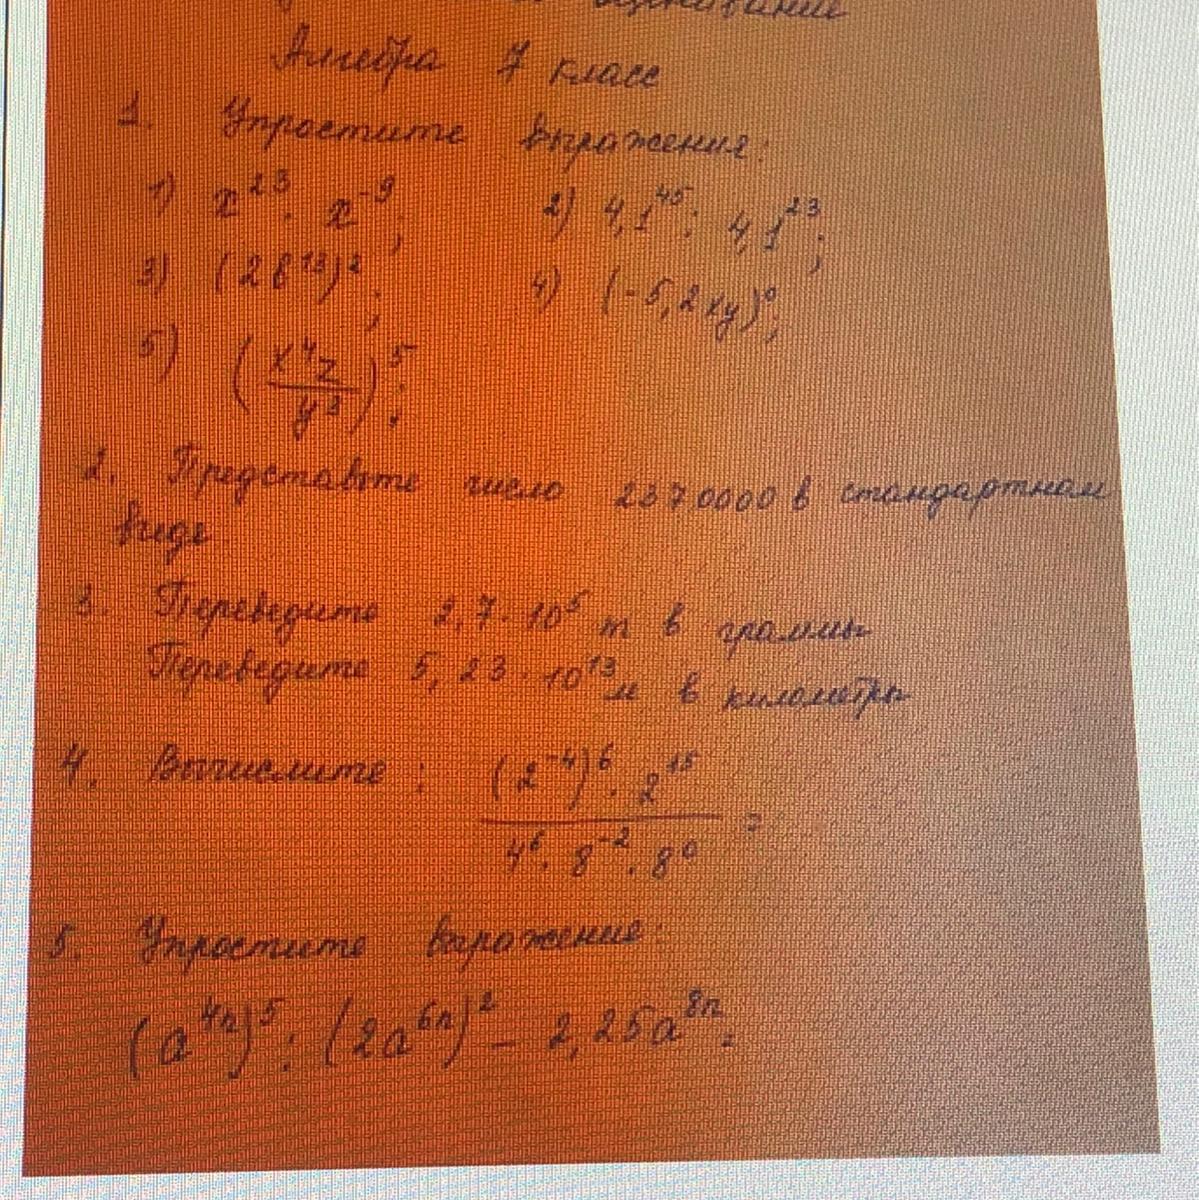 оценивание
Алгебра 7 класс
1. Упростите выражения:
1) x²³ · x⁻⁹; 2) 4,1⁴⁵ : 4,1²³;
3) (2b¹³)²; 4) (-5,2xy)⁰;
5) (x⁴z/y³)⁵;
2. Представьте число 2370000 в стандартном
виде
3. Переведите 2,7 · 10⁵ т в граммы
Переведите 5,23 · 10¹³ м в километры
4. Вычислите: (2⁻⁴)⁶ · 2¹⁵ / 4⁶ · 8⁻² · 8⁰ =
5. Упростите выражение:
(a⁴ⁿ)⁵ : (2a⁶ⁿ)² - 2,25a⁸ⁿ.